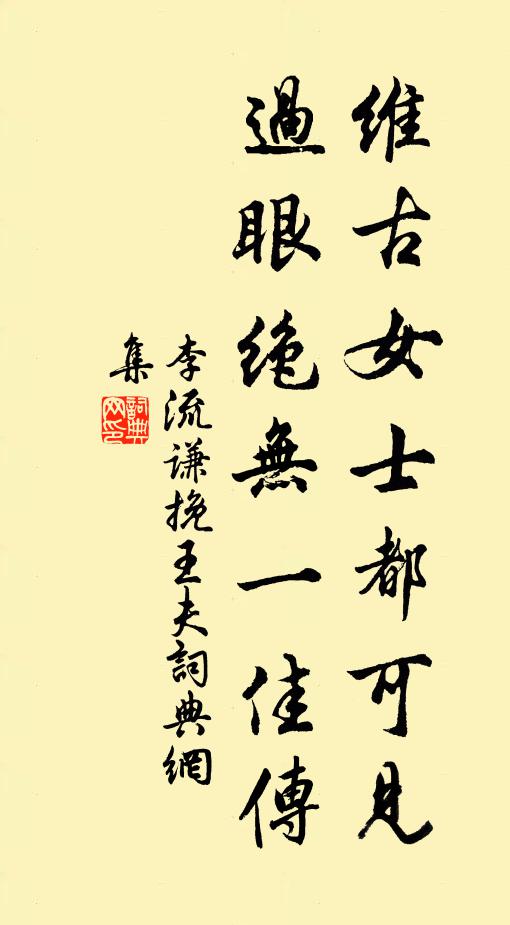 維古女士都可見
過眼絶無一佳傳
李流謙挽王夫詞典網
集
詞典
网印